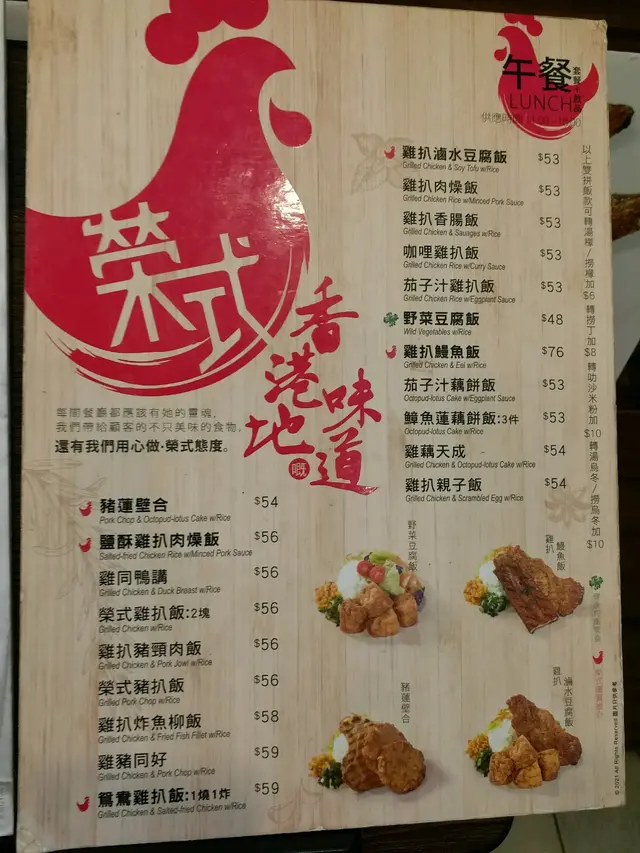 榮式
香港地
嘅
味道
每間餐廳都應該有她的靈魂,
我們帶給顧客的不只美味的食物,
還有我們用心做·榮式態度。
午餐
套餐+飲品
LUNCH
供應時間
雞扒滷水豆腐飯 $53
Grilled Chicken & Soy Tofu w/Rice
雞扒肉燥飯 $53
Grilled Chicken Rice w/Minced Pork Sauce
雞扒香腸飯 $53
Grilled Chicken & Sausages w/Rice
咖哩雞扒飯 $53
Grilled Chicken Rice w/Curry Sauce
茄子汁雞扒飯 $53
Grilled Chicken Rice w/Eggplant Sauce
野菜豆腐飯 $48
Wild Vegetables w/Rice
雞扒鰻魚飯 $76
Grilled Chicken & Eel w/Rice
茄子汁藕餅飯 $53
Octopud-lotus Cake w/Eggplant Sauce
鱆魚蓮藕餅飯:3件 $53
Octopud-lotus Cake w/Rice
雞藕天成 $54
Grilled Chicken & Octopud-lotus Cake w/Rice
雞扒親子飯 $54
Grilled Chicken & Scrambled Egg w/Rice
以上雙拼飯款可轉湯檬/撈檬加$6
轉撈丁加$8
轉叻沙米粉加$10
轉湯烏冬/撈烏冬加$10
豬蓮壁合 $54
Pork Chop & Octopud-lotus Cake w/Rice
鹽酥雞扒肉燥飯 $56
Salted-fried Chicken Rice w/Minced Pork Sauce
雞同鴨講 $56
Grilled Chicken & Duck Breast w/Rice
榮式雞扒飯:2塊 $56
Grilled Chicken w/Rice
雞扒豬頸肉飯 $56
Grilled Chicken & Pork Jowl w/Rice
榮式豬扒飯 $56
Grilled Pork Chop w/Rice
雞扒炸魚柳飯 $58
Grilled Chicken & Fried Fish Fillet w/Rice
雞豬同好 $59
Grilled Chicken & Pork Chop w/Rice
鴛鴦雞扒飯:1燒1炸 $59
Grilled Chicken & Salted-fried Chicken w/Rice
野菜豆腐飯
雞扒
鰻魚飯
豬蓮壁合
雞扒
滷水豆腐飯
© 2021 All Rights Reserved 圖片只供參考